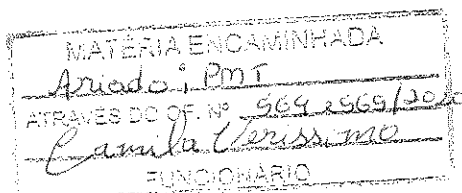 MATÉRIA ENCAMINHADA
Ariado; PMT
ATRAVÉS DO OF. Nº 564 e 565/2020
Camila Verissimo
FUNCIONÁRIO